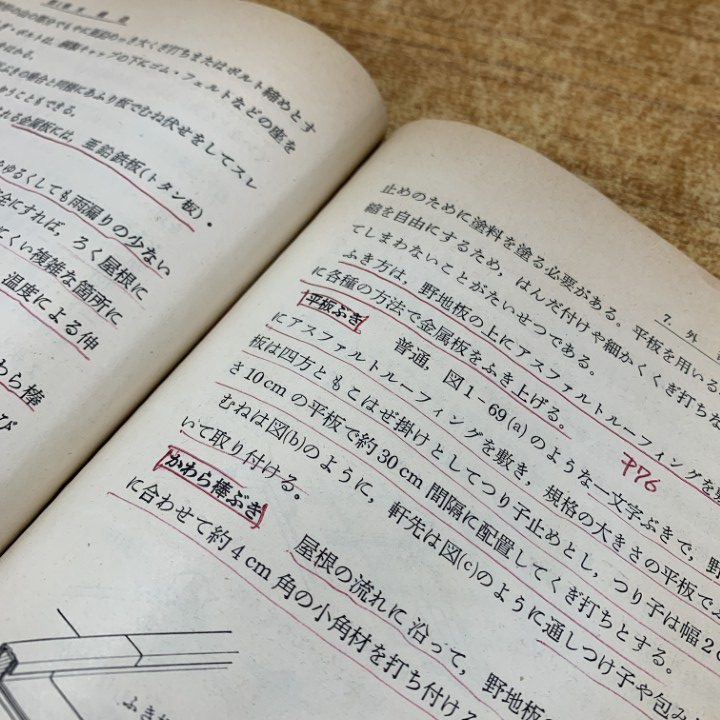 打ちまたはボルト締めとす
ゴム・フェルトなどの座を
むね伏せをしてスレ
うこともできる。
れる金属板には，亜鉛鉄板(トタン板)・
ゆるくしても雨漏りの少ない
全にすれば，ろく屋根に
にくい複雑な箇所に
温度による伸
わら棒
び
7. 外
止めのために塗料を塗る必要がある。平板を用いる
縮を自由にするため，はんだ付けや細かくくぎ打ち
てしまわないことがたいせつである。
ふき方は，野地板の上にアスファルトルーフィングを
に各種の方法で金属板をふき上げる。
平板ぶき 普通，図1-69(a)のような一文字ぶきで，野
にアスファルトルーフィングを敷き，規格の大きさの平板で
板は四方ともこはぜ掛けとしてつり子止めとし，つり子は幅2
さ10cmの平板で約30cm間隔に配置してくぎ打ちとする。
むねは図(b)のように，軒先は図(c)のように通しつけ子や包み
いて取り付ける。
かわら棒ぶき 屋根の流れに沿って，野地板
に合わせて約4cm角の小角材を打ち付ける
P76
ふき